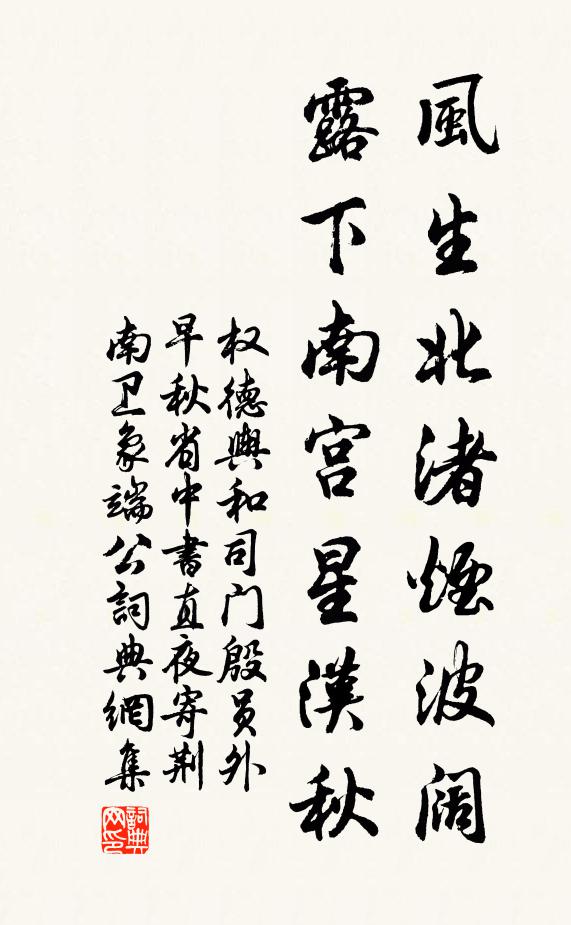 風生北渚煙波阔
露下南宫星漢秋
权德輿和司门殷员外
早秋省中書直夜寄荆
南卫象端公詞典網集
詞典
网印